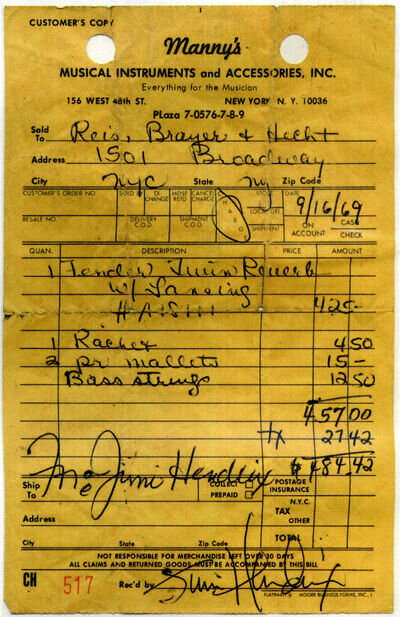 CUSTOMER'S COPY
Manny's
MUSICAL INSTRUMENTS and ACCESSORIES, INC.
Everything for the Musician
156 WEST 48th ST. NEW YORK N. Y. 10036
PLaza 7-0576-7-8-9
Sold To Reis, Brayer & Hecht
Address 1501 Broadway
City NYC State NY Zip Code
CUSTOMER'S ORDER NO. SOLD BY EX-CHANGE MDSE RETD CANCEL CHARGE STORE DATE 9/16/69
RESALE NO. DELIVERY C.O.D. SHIPMENT C.O.D. CHARG LOCAL DEL. SHIPMENT ON ACCOUNT CASH CHECK
QUAN. DESCRIPTION PRICE AMOUNT
1 Fender Twin Reverb
w/ Lansing
# A18111 425-
1 Rachet 4 50
2 pr mallets 15-
Bass strings 12 50
457 00
tx 27 42
$ 484.42
Jimi Hendrix
Ship To COLLECT PREPAID POSTAGE INSURANCE
N.Y.C. TAX OTHER
Address
City State Zip Code TOTAL
NOT RESPONSIBLE FOR MERCHANDISE LEFT OVER 30 DAYS
ALL CLAIMS AND RETURNED GOODS MUST BE ACCOMPANIED BY THIS BILL
CH 517 Rec'd by
MOORE BUSINESS FORMS, INC.